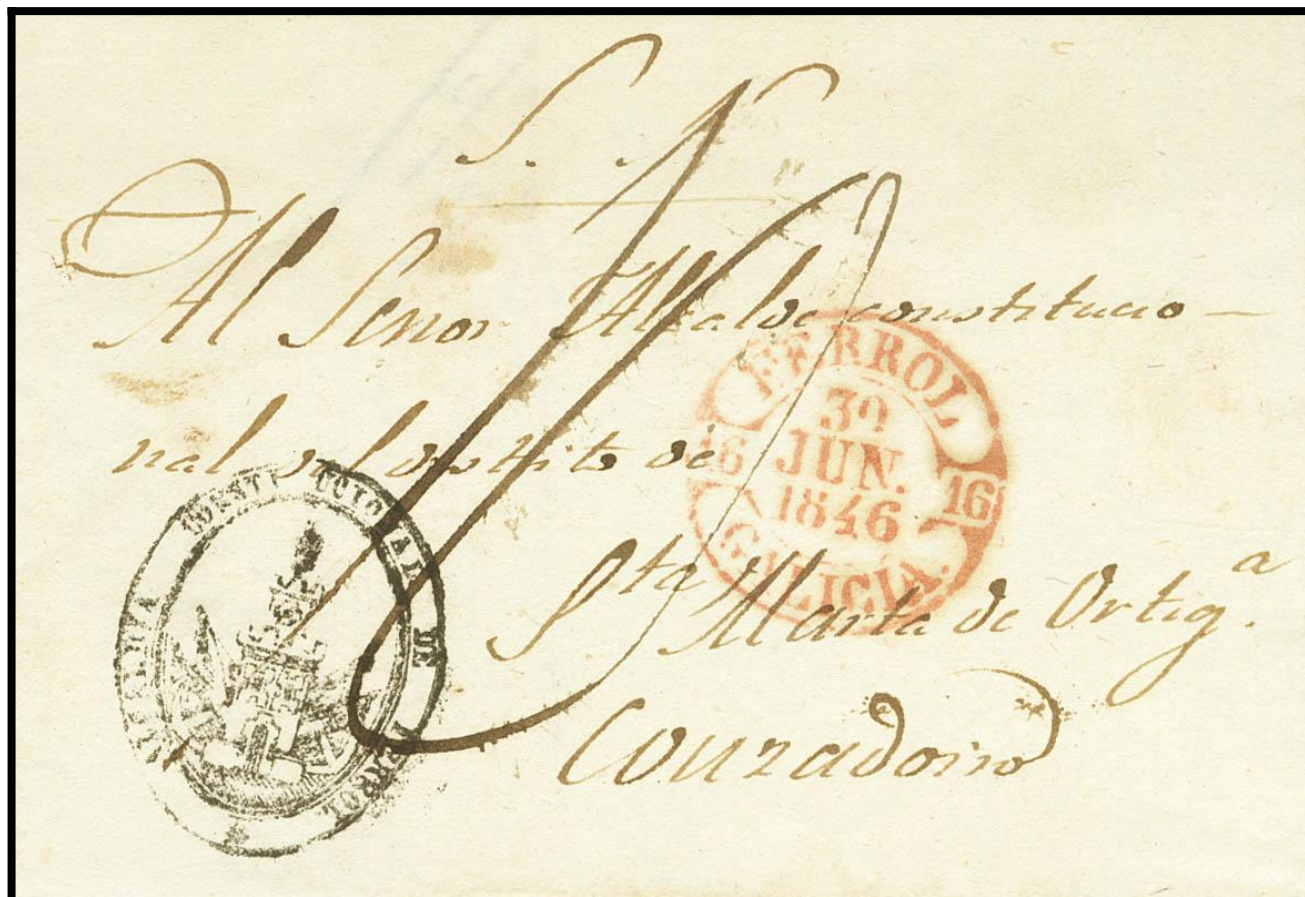 S. N.
Al Senor Alcalde constitucio-
nal del distrito de
Sta Marta de Ortiga.
Couzadoiro
FERROL
30
JUN.
1846
16 16
GALICIA.
ALCALDIA CONSTITUCIONAL DE FERROL